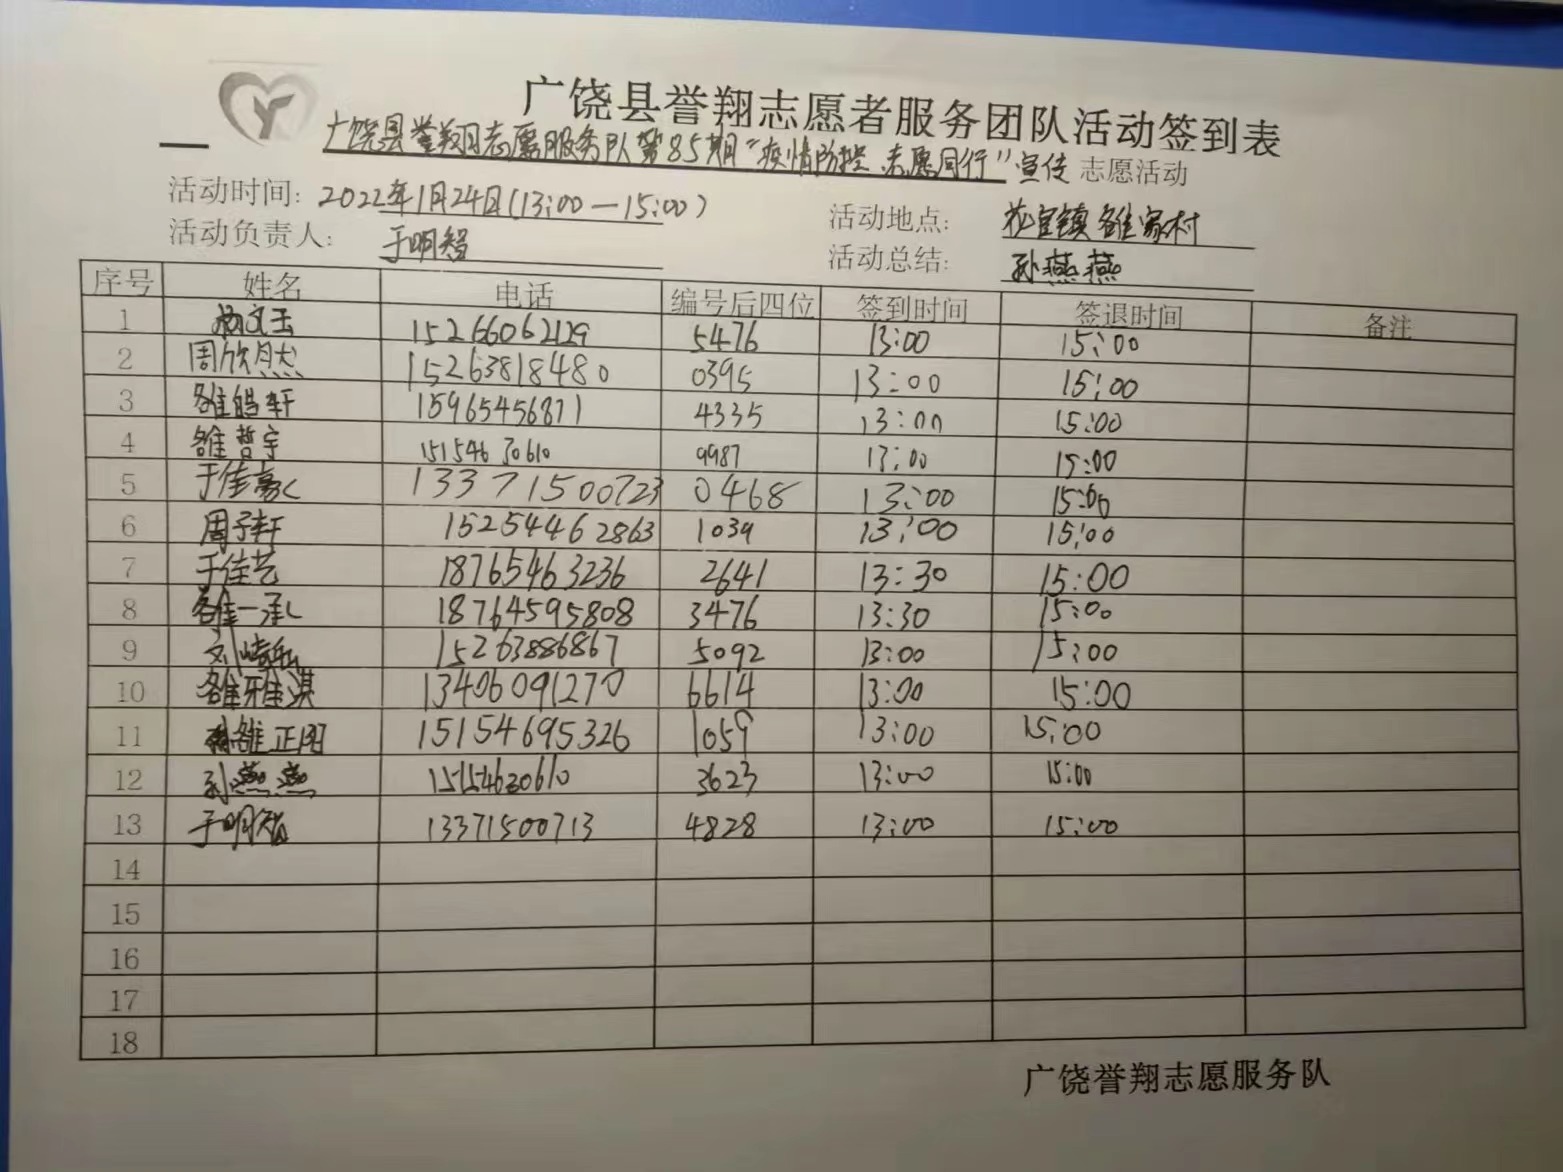 广饶县誉翔志愿者服务团队活动签到表
广饶县誉翔志愿服务队第85期“疫情防控 志愿同行”宣传 志愿活动
活动时间: 2022年1月24日(13:00—15:00) 活动地点: 花官镇雒家村
活动负责人: 于明智 活动总结: 孙燕燕
序号 姓名 电话 编号后四位 签到时间 签退时间 备注
1 杨文玉 15266062129 5476 13:00 15:00
2 周欣然 15263818480 0395 13:00 15:00
3 雒皓轩 15965456871 4335 13:00 15:00
4 雒哲宇 15154630610 9987 13:00 15:00
5 于佳豪 13371500723 0468 13:00 15:00
6 周子轩 15254462863 1039 13:00 15:00
7 于佳艺 18765463236 2641 13:30 15:00
8 雒一承 18764595808 3476 13:30 15:00
9 刘 15263886867 5092 13:00 15:00
10 雒雅淇 13406091270 6614 13:00 15:00
11 雒正图 15154695326 1059 13:00 15:00
12 孙燕燕 15154630610 3623 13:00 15:00
13 于明智 13371500713 4828 13:00 15:00
14
15
16
17
18
广饶誉翔志愿服务队